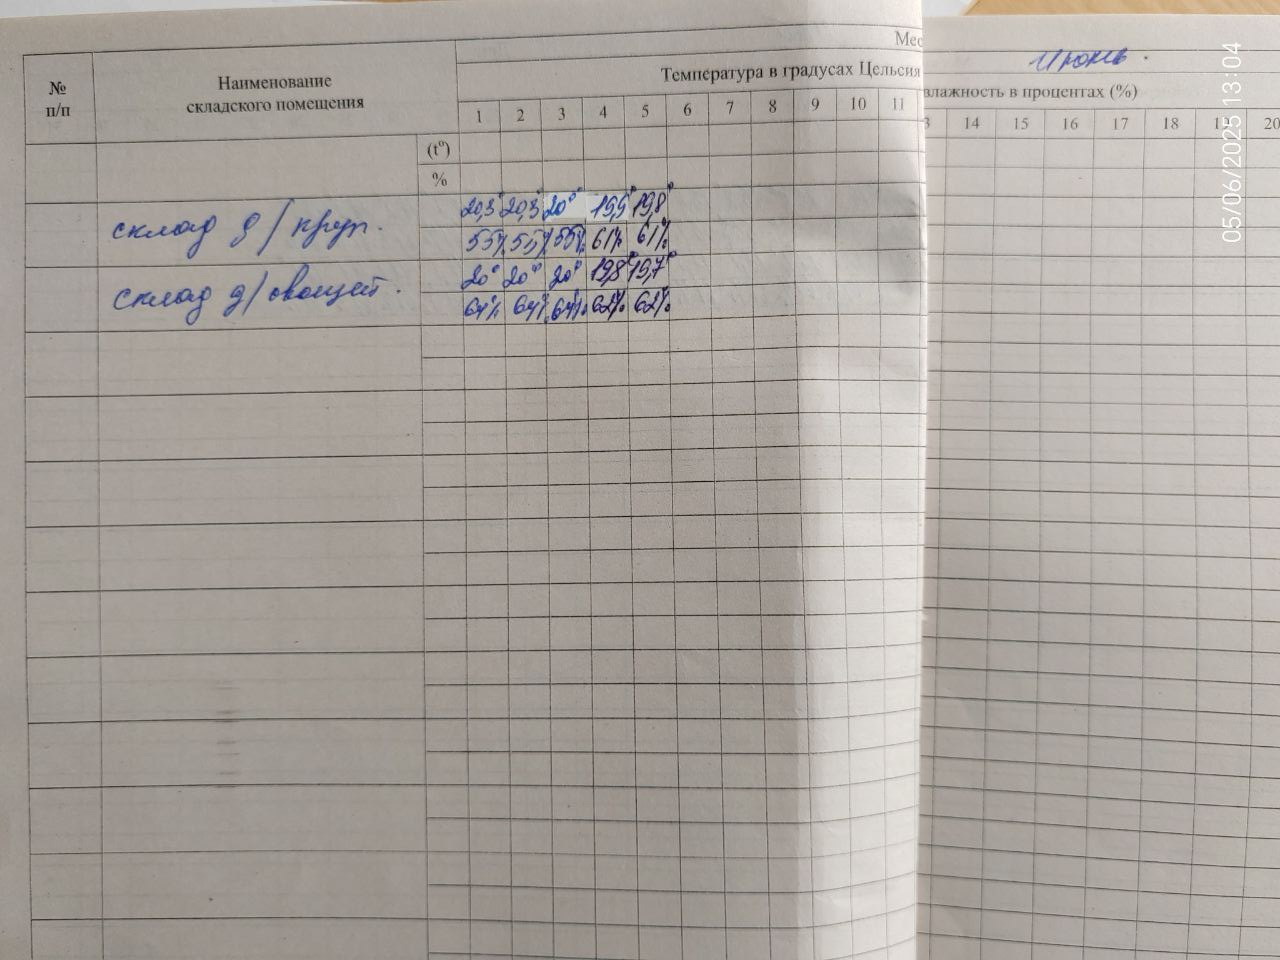 Мес
Июнь.
№ п/п
Наименование складского помещения
Температура в градусах Цельсия
влажность в процентах (%)
1 2 3 4 5 6 7 8 9 10 11
3 14 15 16 17 18 19 20
(t°)
%
склад д/круп.
20,3° 20,3° 20° 19,9° 19,8°
55% 55% 55% 61% 61%
склад д/овощей.
20° 20° 20° 19,8° 19,7°
64% 64% 64% 62% 62%
05/06/2025 13:04